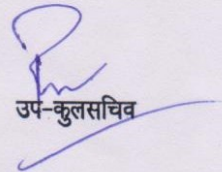 उप-कुलसचिव